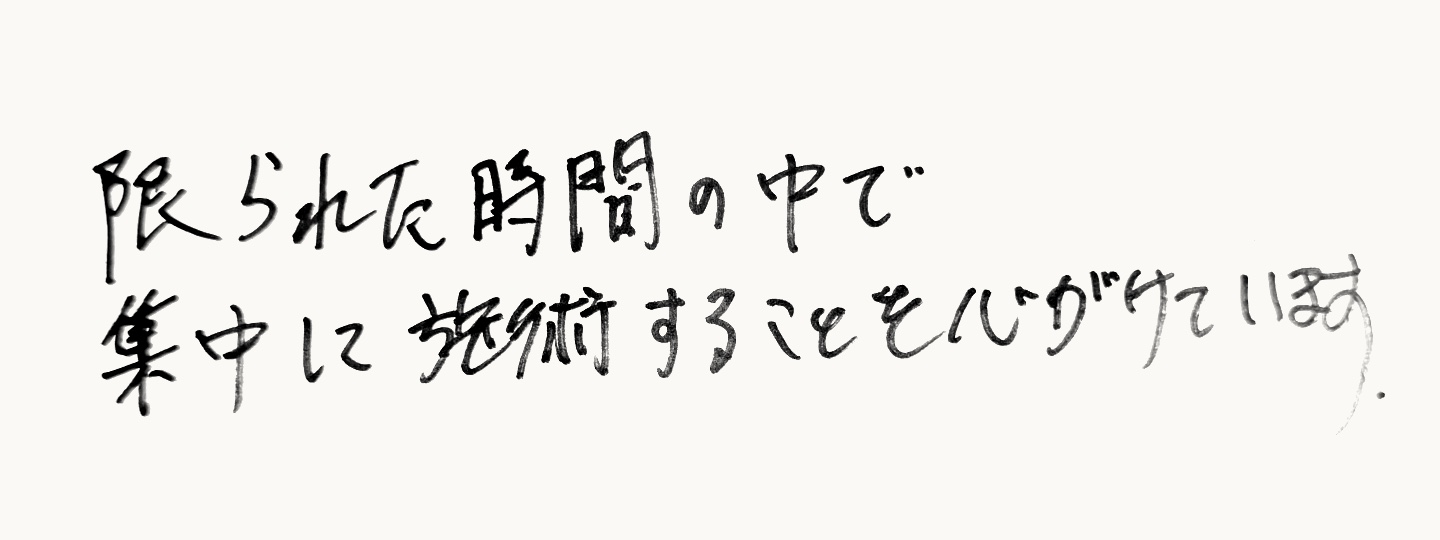 限られた時間の中で
集中に施術することを心がけています.